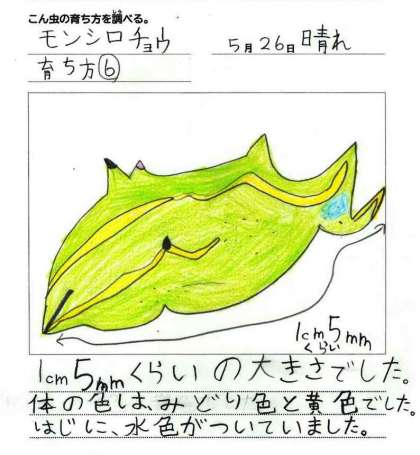 こん虫の育ち方を調べる。
モンシロチョウ
5月26日 晴れ
育ち方⑥
1cm5mm
くらい
1cm5mmくらいの大きさでした。
体の色は、みどり色と黄色でした。
はじに、水色がついていました。